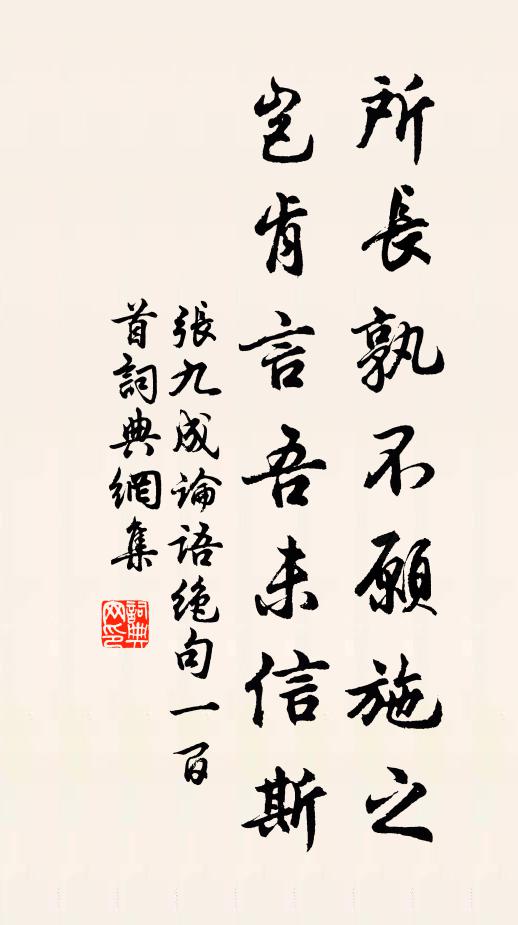 所長孰不願施之
豈肯言吾未信斯
張九成論語絶句一百
首詞典網集
詞典
网印